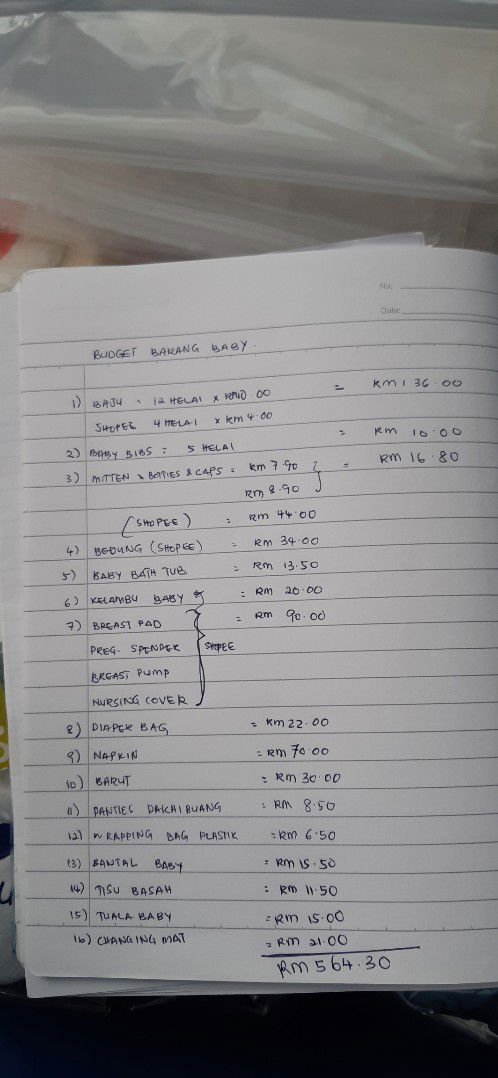 No:
Date:
BUDGET BARANG BABY.
1) BAJU : 12 HELAI x RM10 00 = RM136.00
SHOPEE 4 HELAI x RM4.00
2) BABY BIBS : 5 HELAI = RM 10.00
3) MITTEN & BOTIES & CAPS = RM 7.90 } = RM 16.80
RM 8.90
(SHOPEE) : RM 44.00
4) BEDUNG (SHOPEE) : RM 34.00
5) BABY BATH TUB = RM 13.50
6) KELAMBU BABY = RM 20.00
7) BREAST PAD = RM 90.00
PREG. SPENDER } SHOPEE
BREAST PUMP
NURSING COVER
8) DIAPER BAG = RM22.00
9) NAPKIN = RM 70.00
10) BARUT = RM 30.00
11) PANTIES PAKAI BUANG : RM 8.50
12) WRAPPING BAG PLASTIK = RM 6.50
13) BANTAL BABY = RM 15.50
14) TISU BASAH = RM 11.50
15) TUALA BABY = RM 15.00
16) CHANGING MAT = RM 21.00
RM 564.30